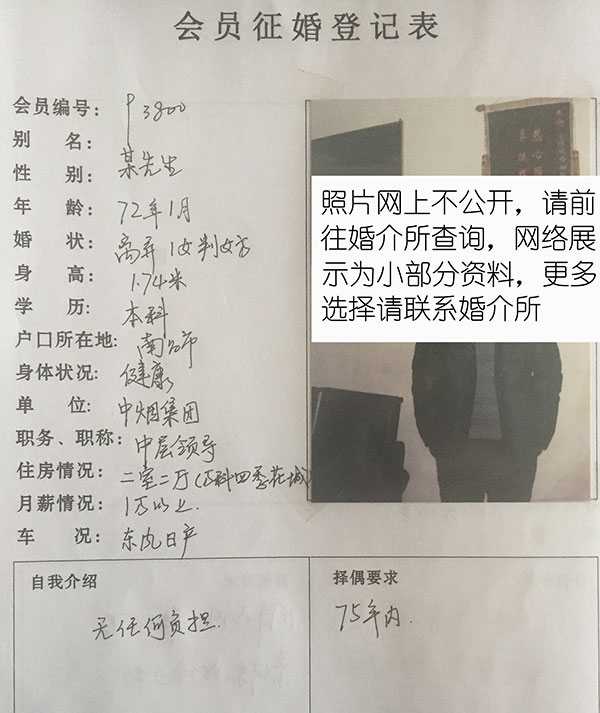 会员征婚登记表
会员编号: P3800
别 名:
性 别: 某先生
年 龄: 72年1月
婚 状: 离异 1女判女方
身 高: 1.74米
学 历: 本科
户口所在地: 南昌市
身体状况: 健康
单 位: 中烟集团
职务、职称: 中层领导
住房情况: 二室二厅(万科四季花城)
月薪情况: 1万以上
车 况: 东风日产
照片网上不公开，请前
往婚介所查询，网络展
示为小部分资料，更多
选择请联系婚介所
自我介绍
无任何负担.
择偶要求
75年内.